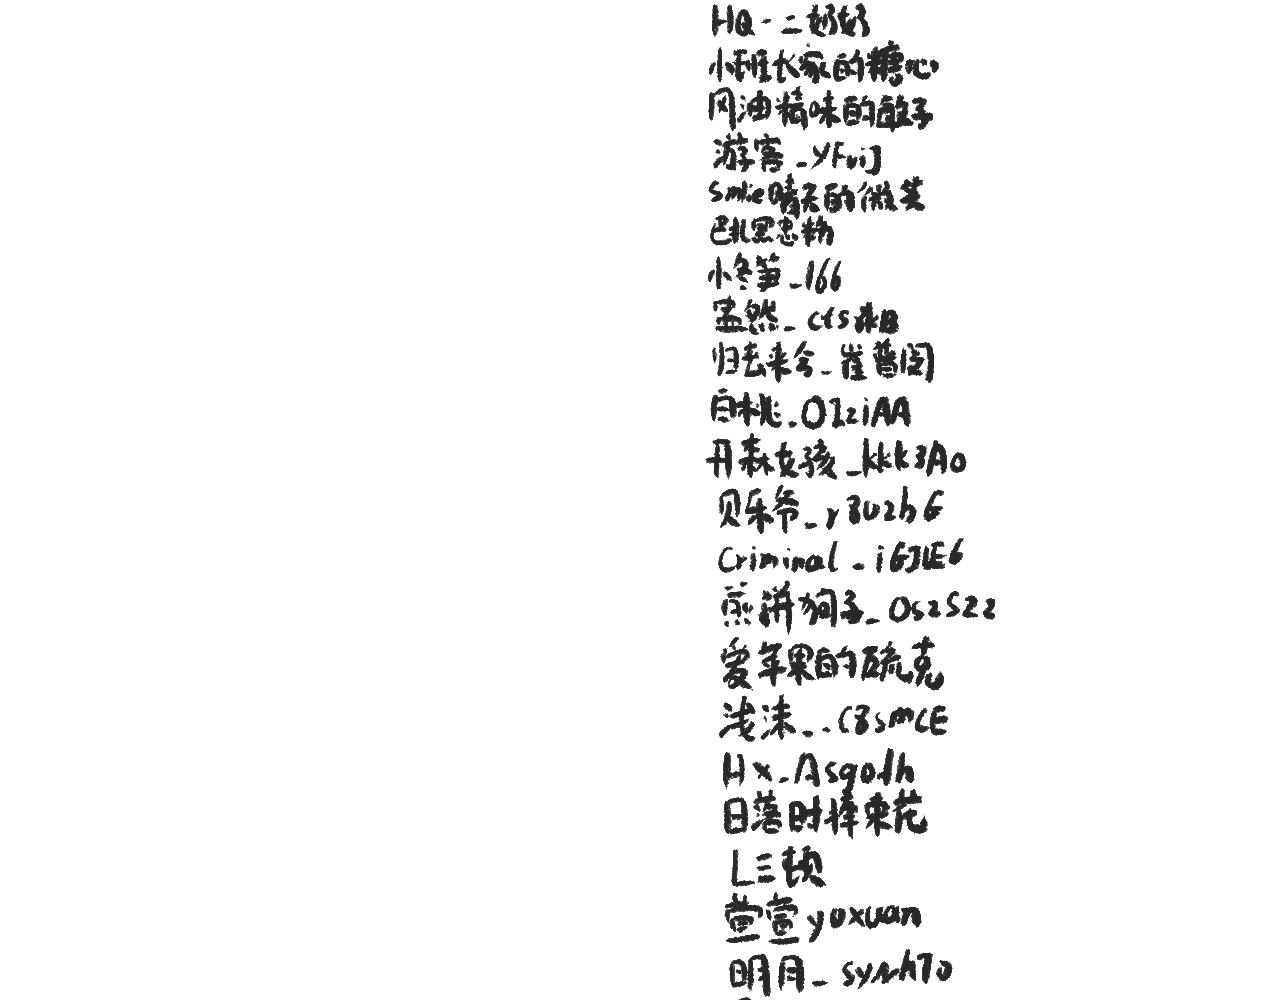 HQ-二奶奶
小班长家的糖心
风油精味的骰子
游客_YFvij
Smlie晴天的微笑
巴扎黑忠粉
小冬笋_166
孟然_
归去来兮_崔普阅
白桃_OIziAA
开森女孩_kkk3Ao
贝乐爷_r3UzhG
Criminal_iGJLE6
煎饼狗子_Os2S22
爱苹果的硫克
浅沫_.C8smCE
Hx_Asqodh
日落时捧束花
L三顿
萱萱yoxuan
明月_